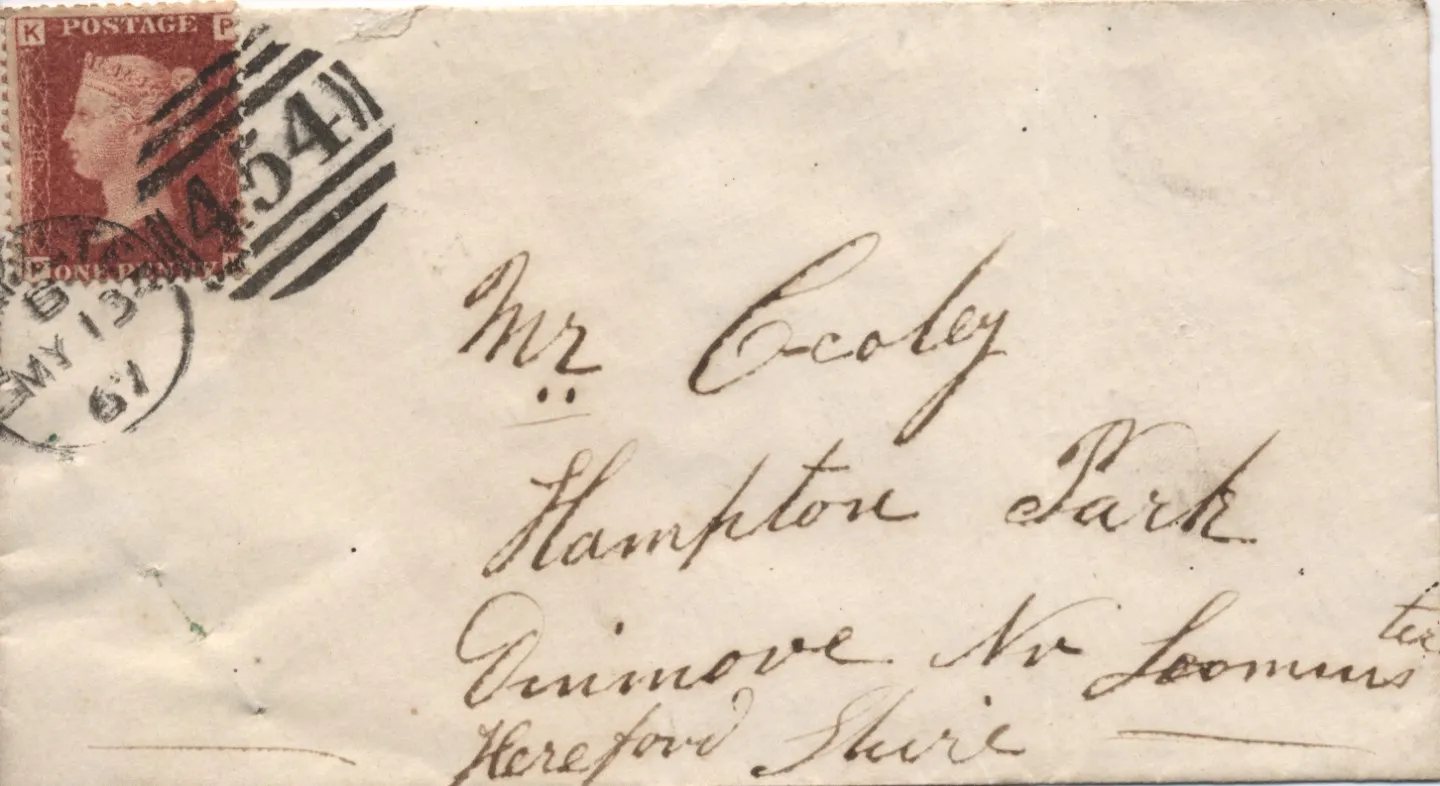 K POSTAGE P
454
ONE PENNY
B
MY 13
67
Mr
Hampton Park
Dinmore Nr Leominster
Hereford Shire